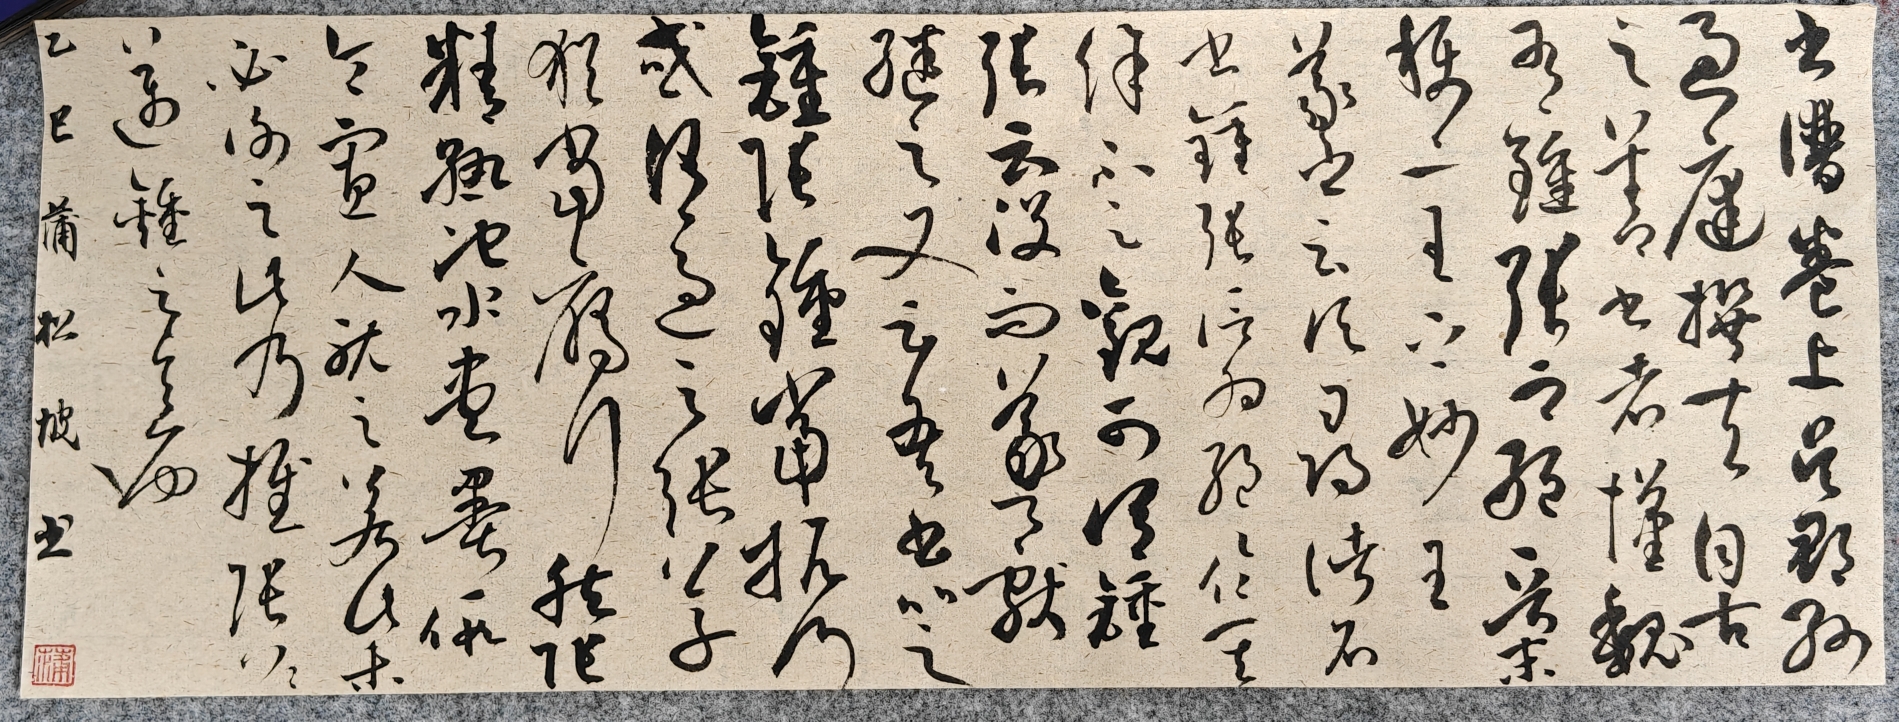 書譜卷上吳郡孫
過庭撰夫自古
之善書者漢魏
有鍾張之絕晉末
稱二王之妙王
羲之云頃尋諸名
書鍾張信為絕倫其
餘不足觀可謂鍾
張云沒而羲獻
繼之又云吾書比之
鍾張鍾當抗行
或謂過之張草
猶當雁行然張
精熟池水盡墨假
令寡人耽之若此未
必謝之此乃推張
邁鍾之意也
乙巳蒲松坡书